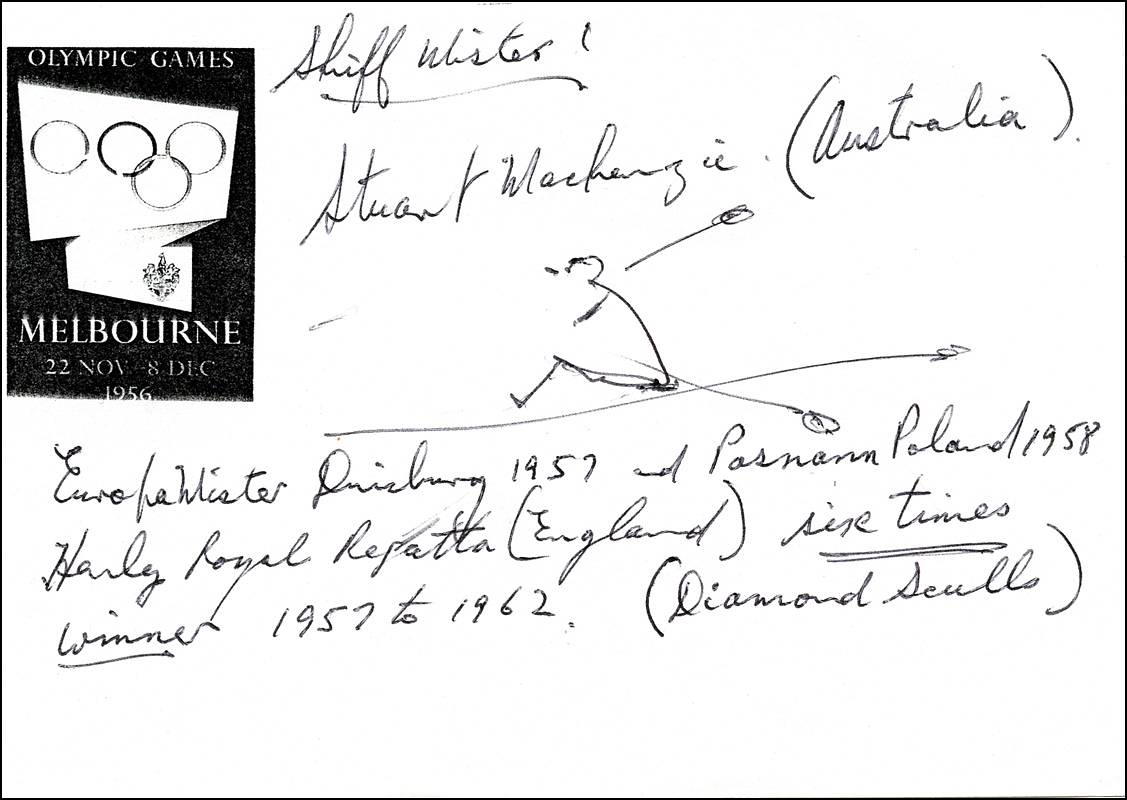 OLYMPIC GAMES
MELBOURNE
22 NOV - 8 DEC
1956
Skiff Mister!
Stuart Mackenzie. (Australia).
EuropaMister Duisburg 1957 and Posnann Poland 1958
Henley Royal Regatta (England) six times
winner 1957 to 1962. (Diamond Sculls)